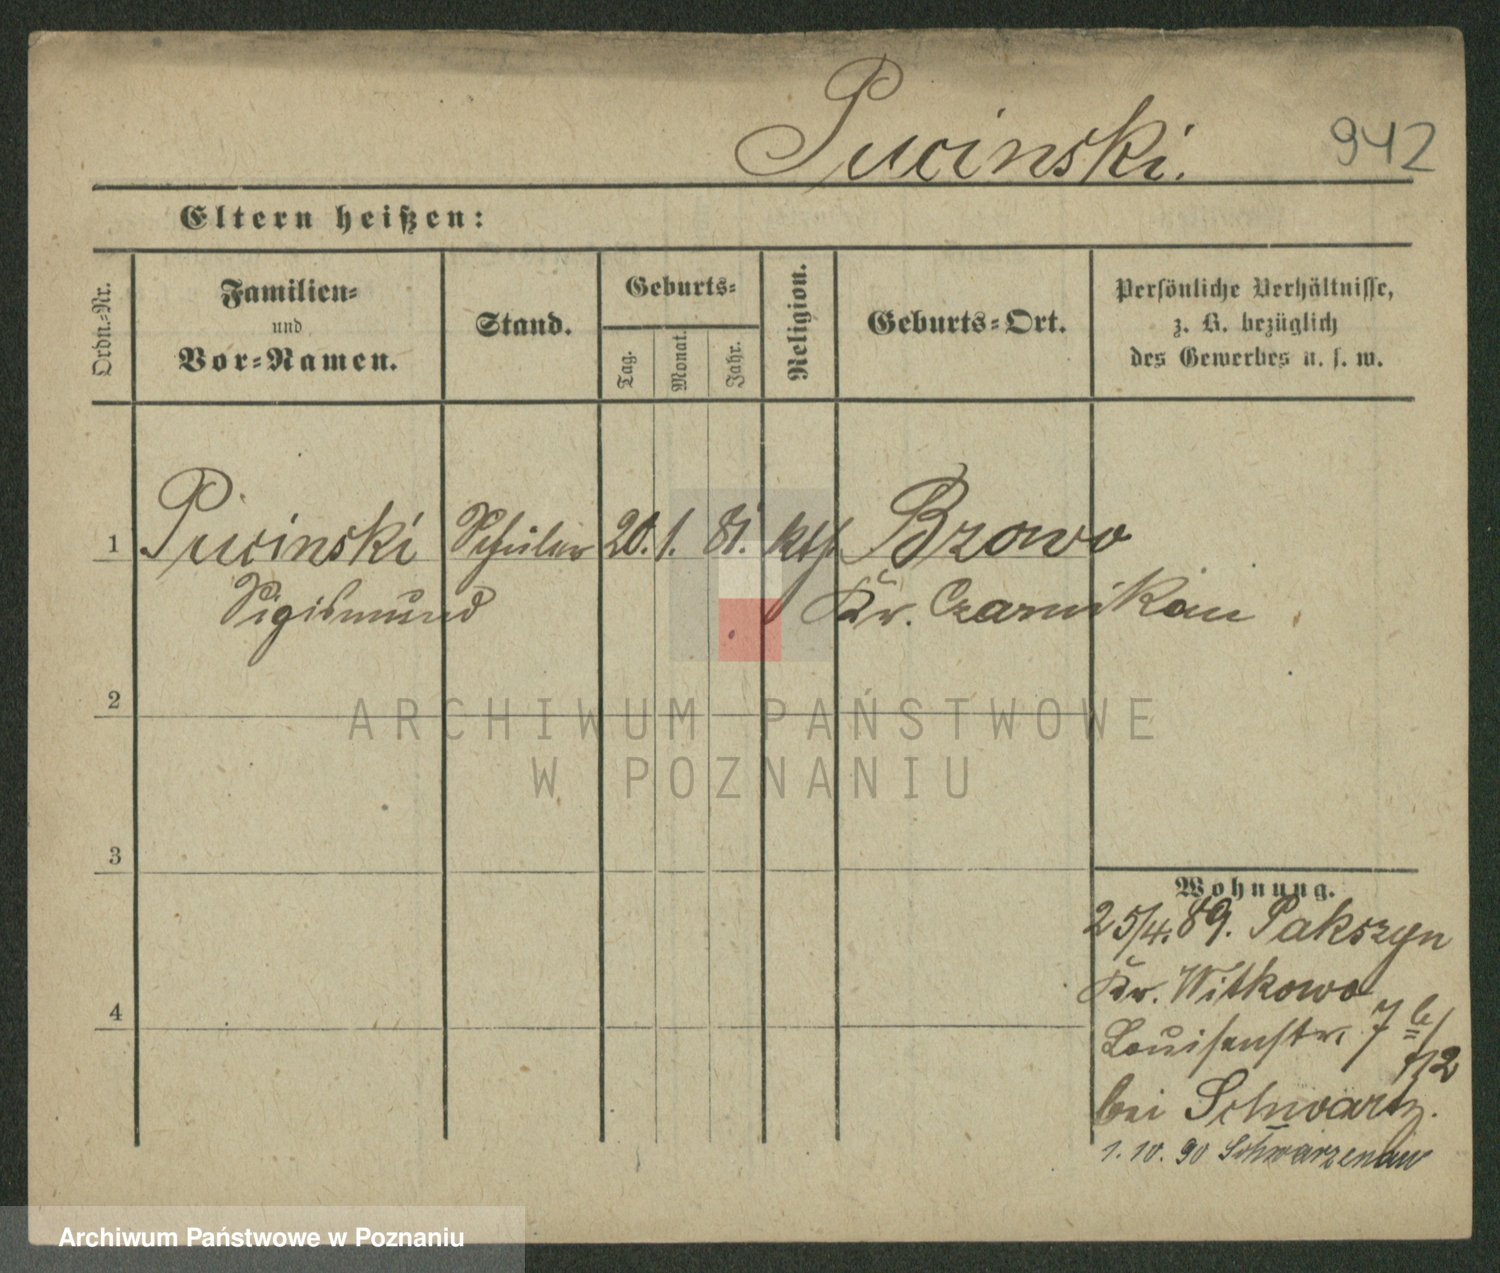 Pucinski.
942
Eltern heißen:
Ordn.-Nr.
Familien-
und
Vor-Namen.
Stand.
Geburts-
Tag.
Monat.
Jahr.
Religion.
Geburts-Ort.
Persönliche Verhältnisse,
z. B. bezüglich
des Gewerbes u. s. w.
1 Pucinski Schüler 20. 1. 81. kth Brzowo
Sigismund Kr. Czarnikau
2
ARCHIWUM PAŃSTWOWE
W POZNANIU
3
Wohnung.
25/4. 89. Pakszyn
Kr. Witkowo
4
Louisenstr. 7 b/
bei Schwartz.
1. 10. 90 Schwarzenau
Archiwum Państwowe w Poznaniu